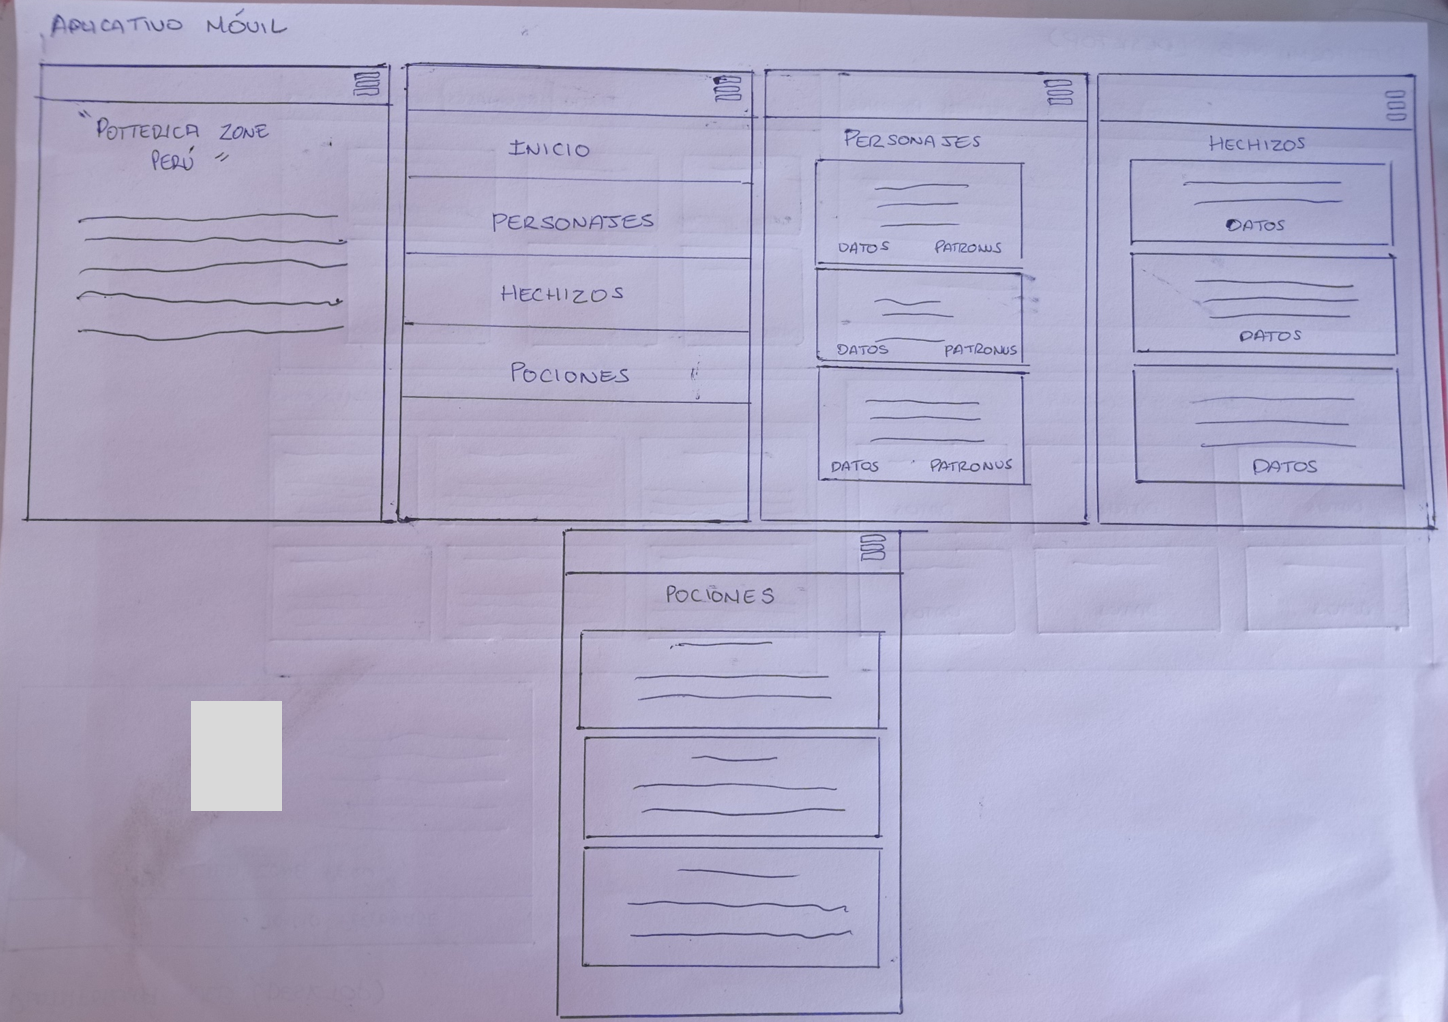 APLICATIVO MÓVIL
"POTTERICA ZONE
PERÚ"
INICIO
PERSONAJES
HECHIZOS
POCIONES
PERSONAJES
DATOS PATRONUS
DATOS PATRONUS
DATOS PATRONUS
HECHIZOS
DATOS
DATOS
DATOS
POCIONES